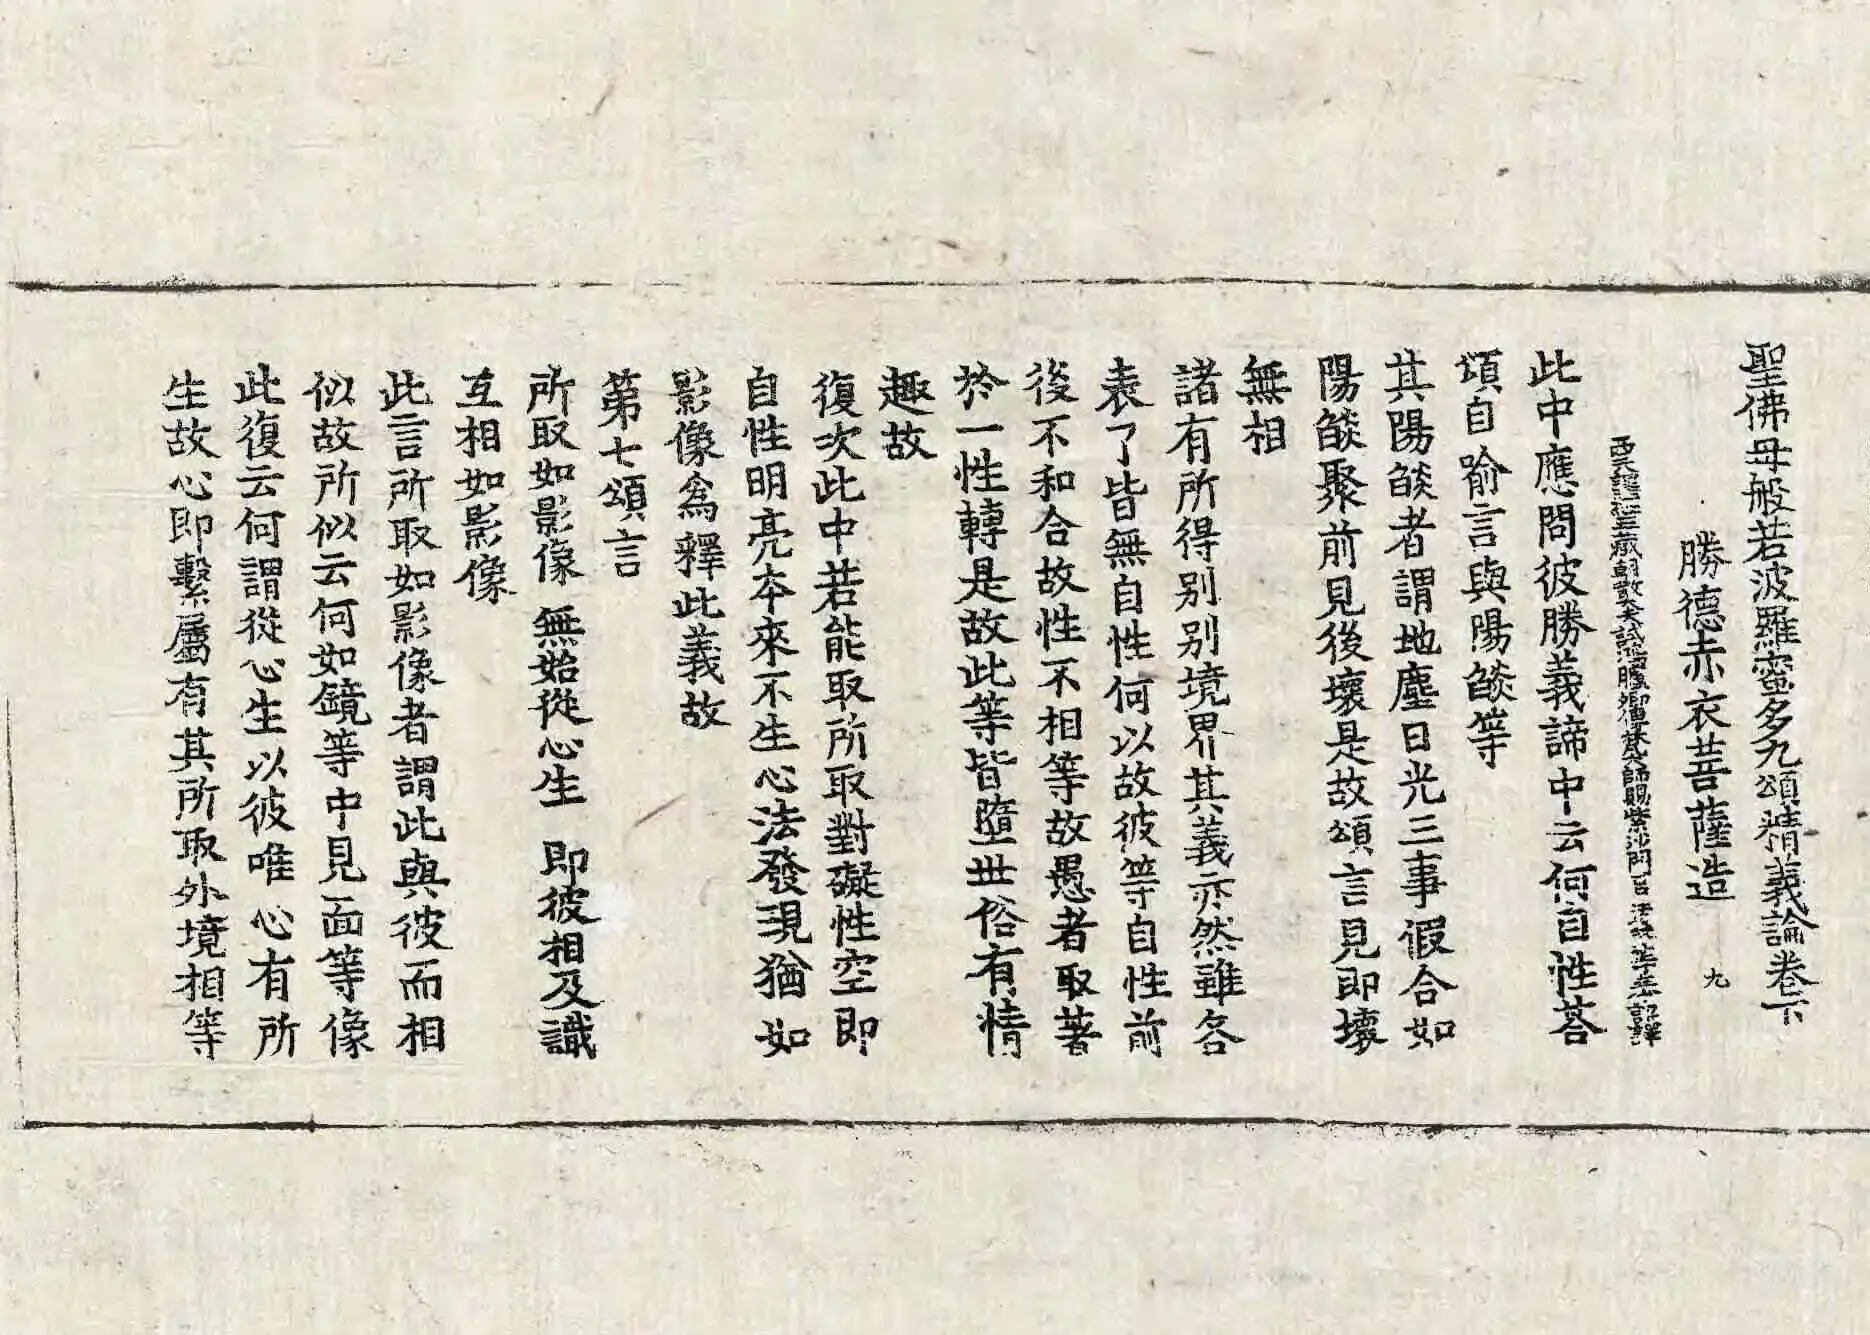 聖佛母般若波羅蜜多九頌精義論卷下
勝德赤衣菩薩造 九
西天譯經三藏朝散大夫試鴻臚卿傳梵大師賜紫沙門臣法護等奉詔譯
此中應問彼勝義諦中云何自性荅
頌自喻言與陽𦦨等
其陽𦦨者謂地塵日光三事假合如
陽𦦨聚前見後壞是故頌言見即壞
無相
諸有所得别别境界其義亦然雖各
表了皆無自性何以故彼等自性前
後不和合故性不相等故愚者取著
於一性轉是故此等皆墮世俗有情
趣故
復次此中若能取所取對礙性空即
自性明亮本來不生心法發現猶如
影像為釋此義故
第七頌言
所取如影像 無始從心生 即彼相及識
互相如影像
此言所取如影像者謂此與彼而相
似故所似云何如鏡等中見面等像
此復云何謂從心生以彼唯心有所
生故心即繫屬有其所取外境相等